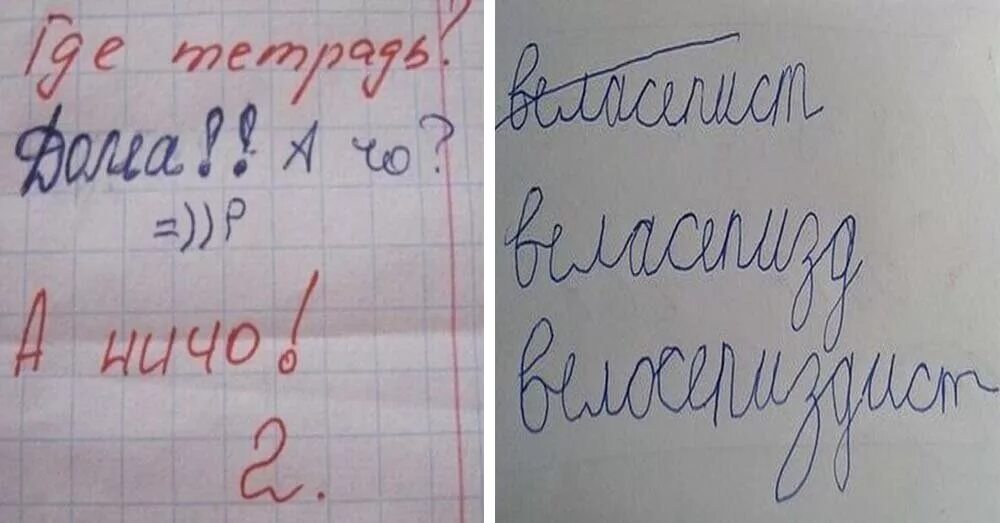 Где тетрадь?
Дома!! А чо?
=))Р
А ничо!
2.
веласепист
веласепизд
велосепиздист